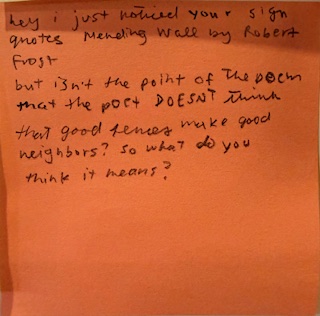 hey i just noticed your sign
quotes Mending Wall by Robert
Frost
but isn't the point of The poem
that the poet DOESN'T think
that good fences make good
neighbors? so what do you
think it means?